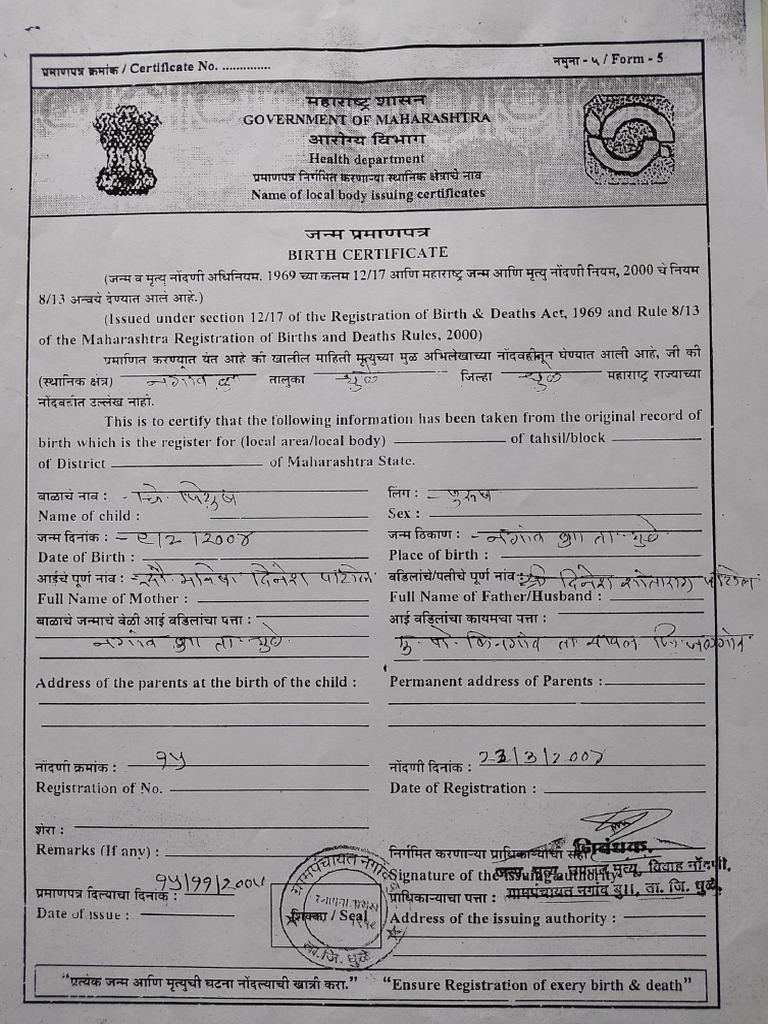 प्रमाणपत्र क्रमांक / Certificate No. .............. नमुना - ५ / Form - 5
महाराष्ट्र शासन
GOVERNMENT OF MAHARASHTRA
आरोग्य विभाग
Health department
प्रमाणपत्र निर्गमित करणाऱ्या स्थानिक क्षेत्राचे नाव
Name of local body issuing certificates
जन्म प्रमाणपत्र
BIRTH CERTIFICATE
(जन्म व मृत्यु नोंदणी अधिनियम, 1969 च्या कलम 12/17 आणि महाराष्ट्र जन्म आणि मृत्यु नोंदणी नियम, 2000 चे नियम
8/13 अन्वये देण्यात आले आहे.)
(Issued under section 12/17 of the Registration of Birth & Deaths Act, 1969 and Rule 8/13
of the Maharashtra Registration of Births and Deaths Rules, 2000)
प्रमाणित करण्यात येत आहे की खालील माहिती मृत्युच्या मुळ अभिलेखाच्या नोंदवहीतून घेण्यात आली आहे, जी की
(स्थानिक क्षेत्र) नगांव बु तालुका धुळे जिल्हा धुळे महाराष्ट्र राज्याच्या
नोंदवहीत उल्लेख नाही.
This is to certify that the following information has been taken from the original record of
birth which is the register for (local area/local body) of tahsil/block
of District of Maharashtra State.
बाळाचे नाव : लिंग : पुरुष
Name of child : Sex :
जन्म दिनांक : /2/2004 जन्म ठिकाण : नगांव बु॥ ता धुळे
Date of Birth : Place of birth :
आईचे पूर्ण नाव : सौ मनिषा दिनेश पाटील वडिलांचे/पतीचे पूर्ण नाव : श्री दिनेश पाटील
Full Name of Mother : Full Name of Father/Husband :
बाळाचे जन्माचे वेळी आई वडिलांचा पत्ता : आई वडिलांचा कायमचा पत्ता :
नगांव बु॥ ता धुळे मु पो किनगांव ता यावल जि जळगांव
Address of the parents at the birth of the child : Permanent address of Parents :
नोंदणी क्रमांक : १५ नोंदणी दिनांक : 23/3/2004
Registration of No. Date of Registration :
शेरा :
Remarks (If any) : निर्गमित करणाऱ्या प्राधिकाऱ्याची सही
निबंधक.
Signature of the issuing authority
जन्म, मृत्यू, विवाह नोंदणी,
प्रमाणपत्र दिल्याचा दिनांक : १५/११/200 प्राधिकाऱ्याचा पत्ता : ग्रामपंचायत नगांव बु॥, ता. जि. धुळे.
Date of issue : शिक्का / Seal Address of the issuing authority :
ग्रामपंचायत नगांव
ता.जि. धुळे
"प्रत्येक जन्म आणि मृत्युची घटना नोंदल्याची खात्री करा." "Ensure Registration of exery birth & death"